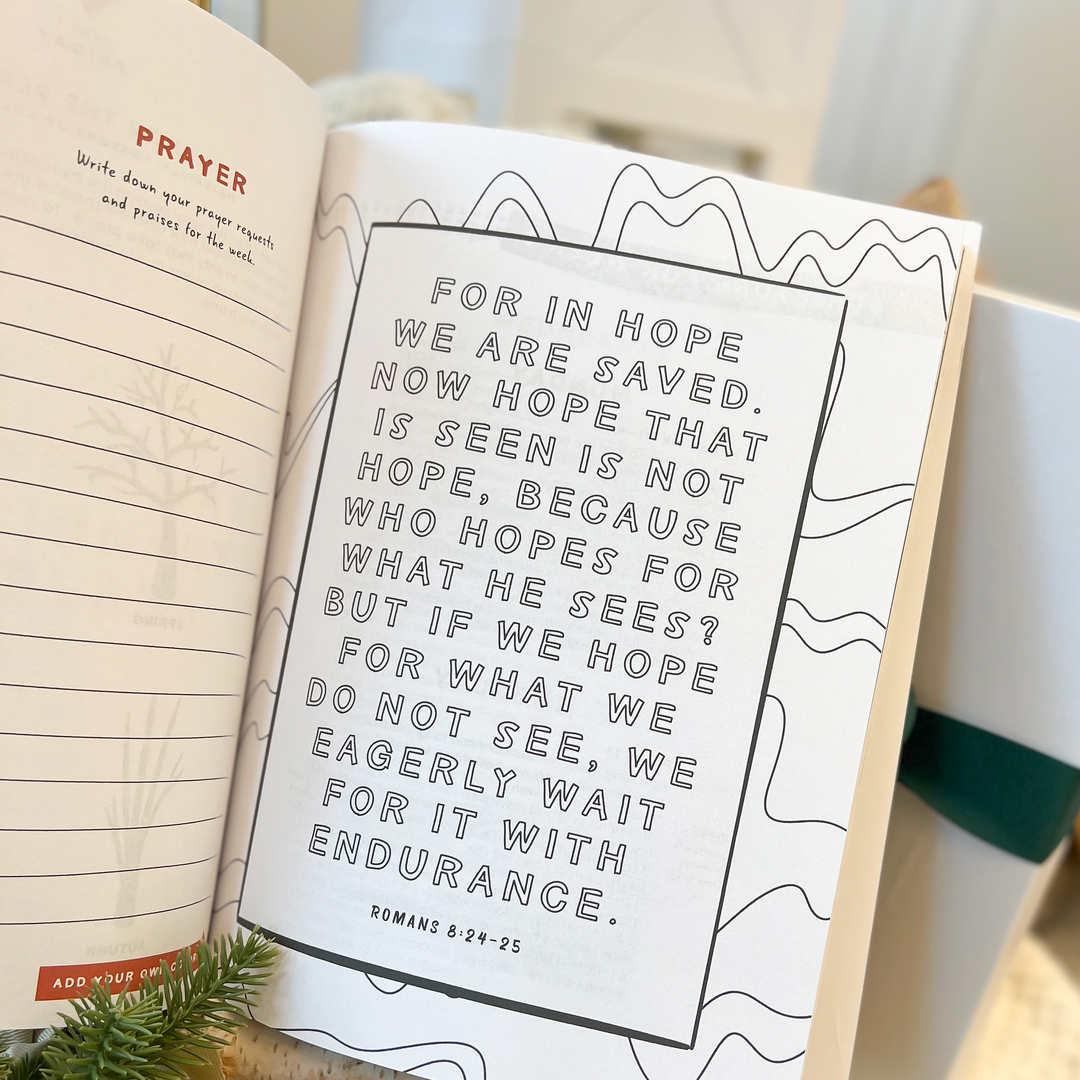 PRAYER
Write down your prayer requests
and praises for the week.
ADD YOUR OWN
FOR IN HOPE
WE ARE SAVED.
NOW HOPE THAT
IS SEEN IS NOT
HOPE, BECAUSE
WHO HOPES FOR
WHAT HE SEES?
BUT IF WE HOPE
FOR WHAT WE
DO NOT SEE, WE
EAGERLY WAIT
FOR IT WITH
ENDURANCE.
ROMANS 8:24-25